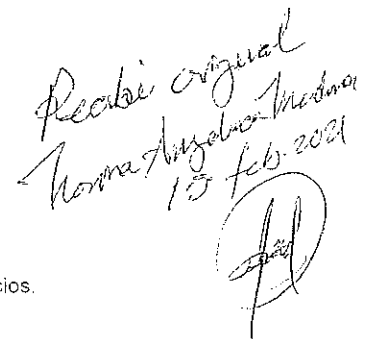 Recibi original
Norma Angelica Medina
15 feb. 2021
cios.